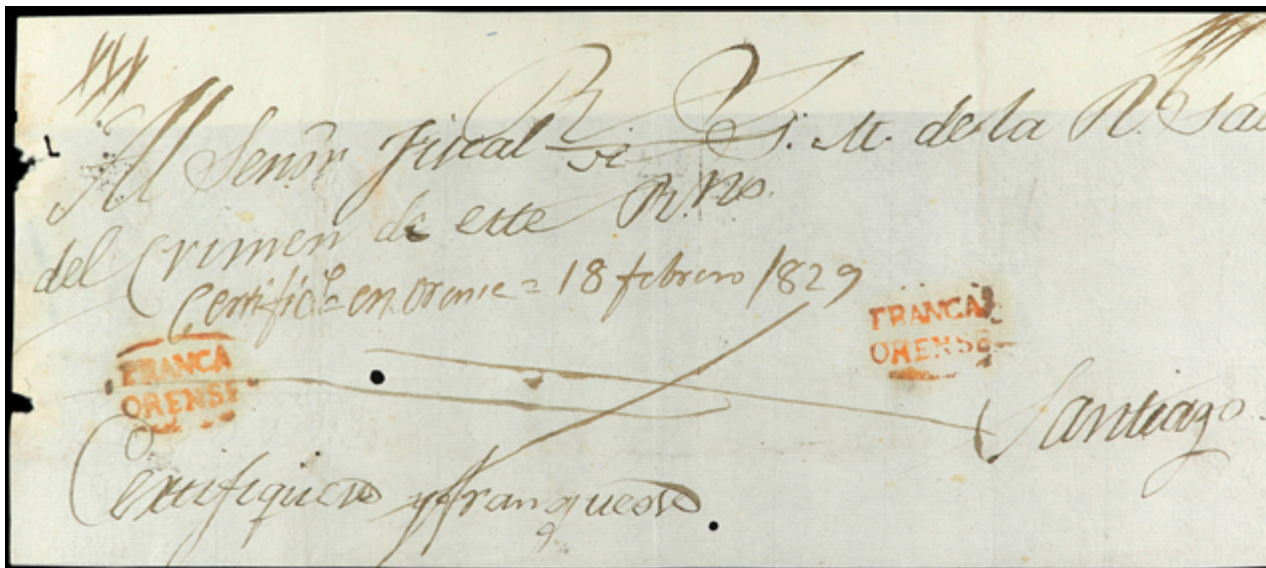 Al Señor Fiscal de S. M. de la R. Sala
del Crimen de este R.no.
Certificdo en Orense = 18 febrero 1829
FRANCA
ORENSE
FRANCA
ORENSE
Santiago.
Certifiquese y franquese